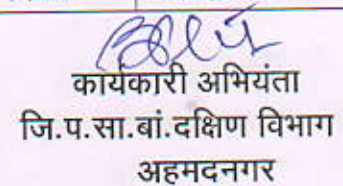 कार्यकारी अभियंता
जि.प.सा.बां.दक्षिण विभाग
अहमदनगर